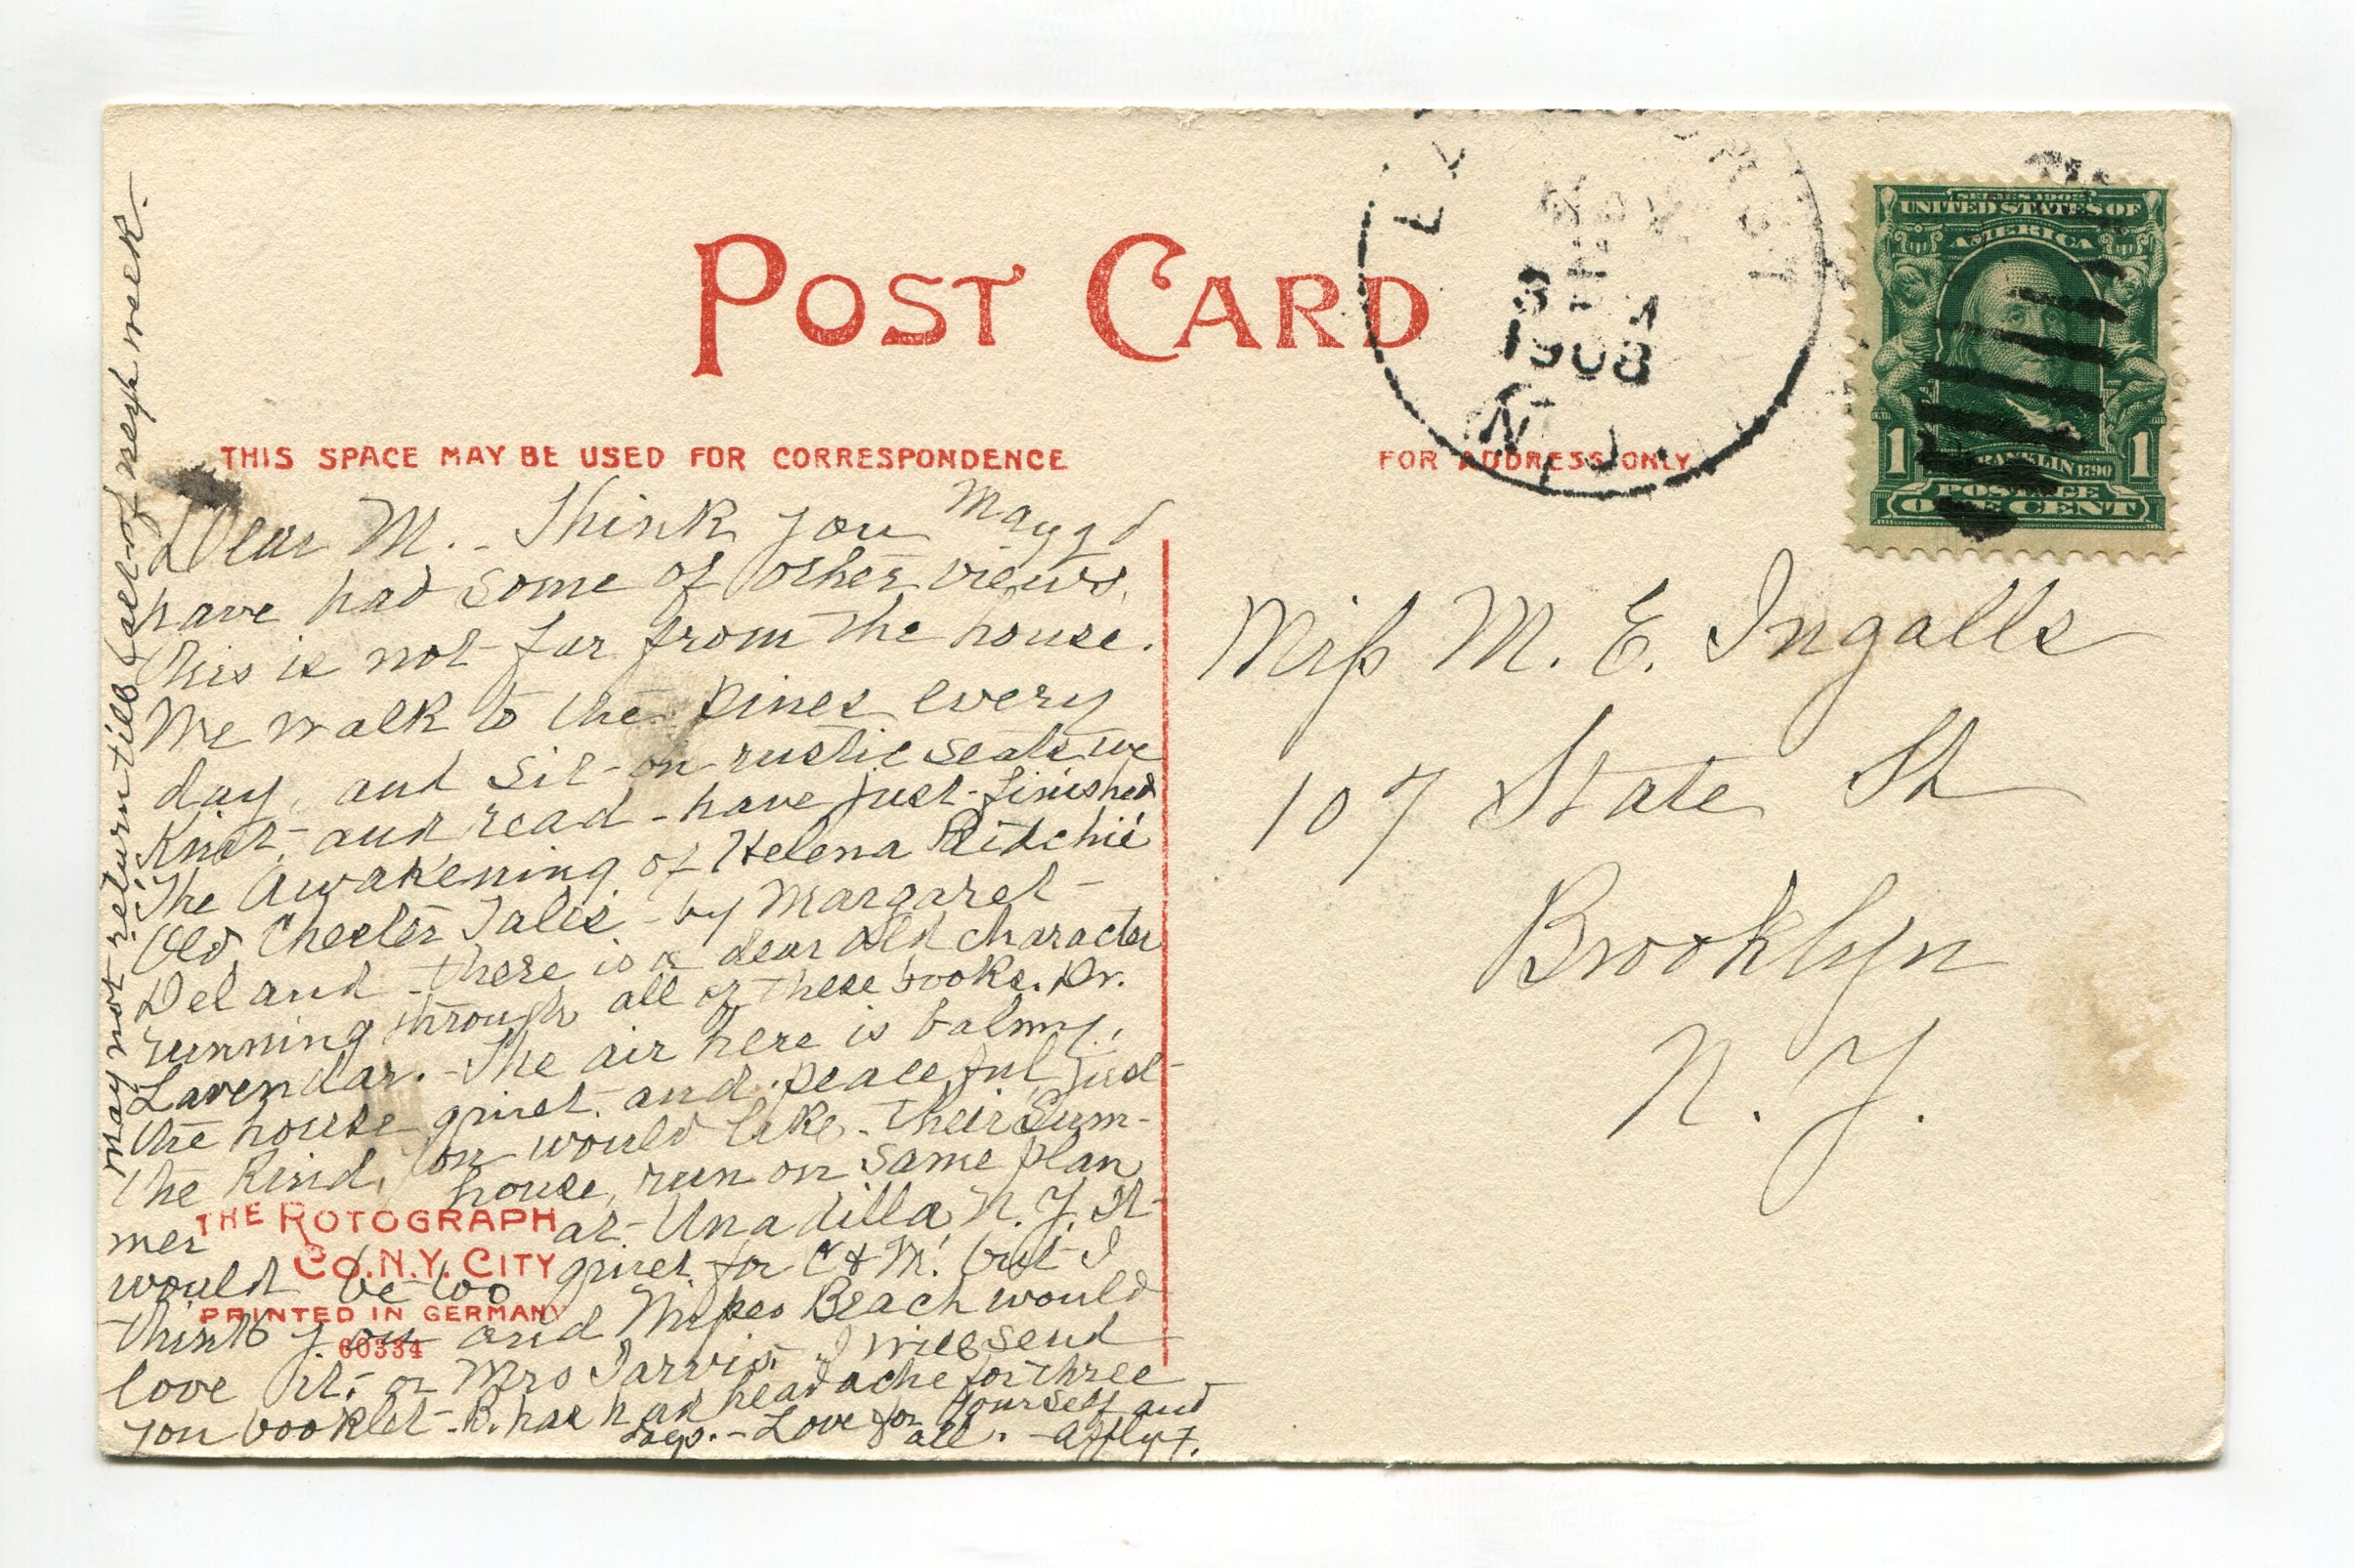 POST CARD
THIS SPACE MAY BE USED FOR CORRESPONDENCE
FOR ADDRESS ONLY
1908
N.J.
SERIES 1902
UNITED STATES OF
AMERICA
1 FRANKLIN 1790 1
POSTAGE
ONE CENT
May 2d
Dear M. - Think you
have had some of other views,
this is not far from the house.
We walk to the pines every
day, and sit on rustic seats we
Knit, and read - have just finished
The Awakening of Helena Ritchie
Old Chester Tales - by Margaret
Deland - there is a dear old character
running through all of these books. Dr.
Lavendar. - The air here is balmy,
the house quiet, and peaceful just
the kind, you would like. Their Sum-
mer house, run on same plan
at Unadilla, N.Y. It
would be too quiet for C & M. but I
think you and Miss Beach would
love it. or Mrs Jarvis. I will send
you booklet - R. has had headache for three
days. - Love for yourself and
all. - Affly F.
may not return till last of next week.
THE ROTOGRAPH
CO. N.Y. CITY
PRINTED IN GERMANY
60334
Miss M. E. Ingalls
107 State St
Brooklyn
N. Y.